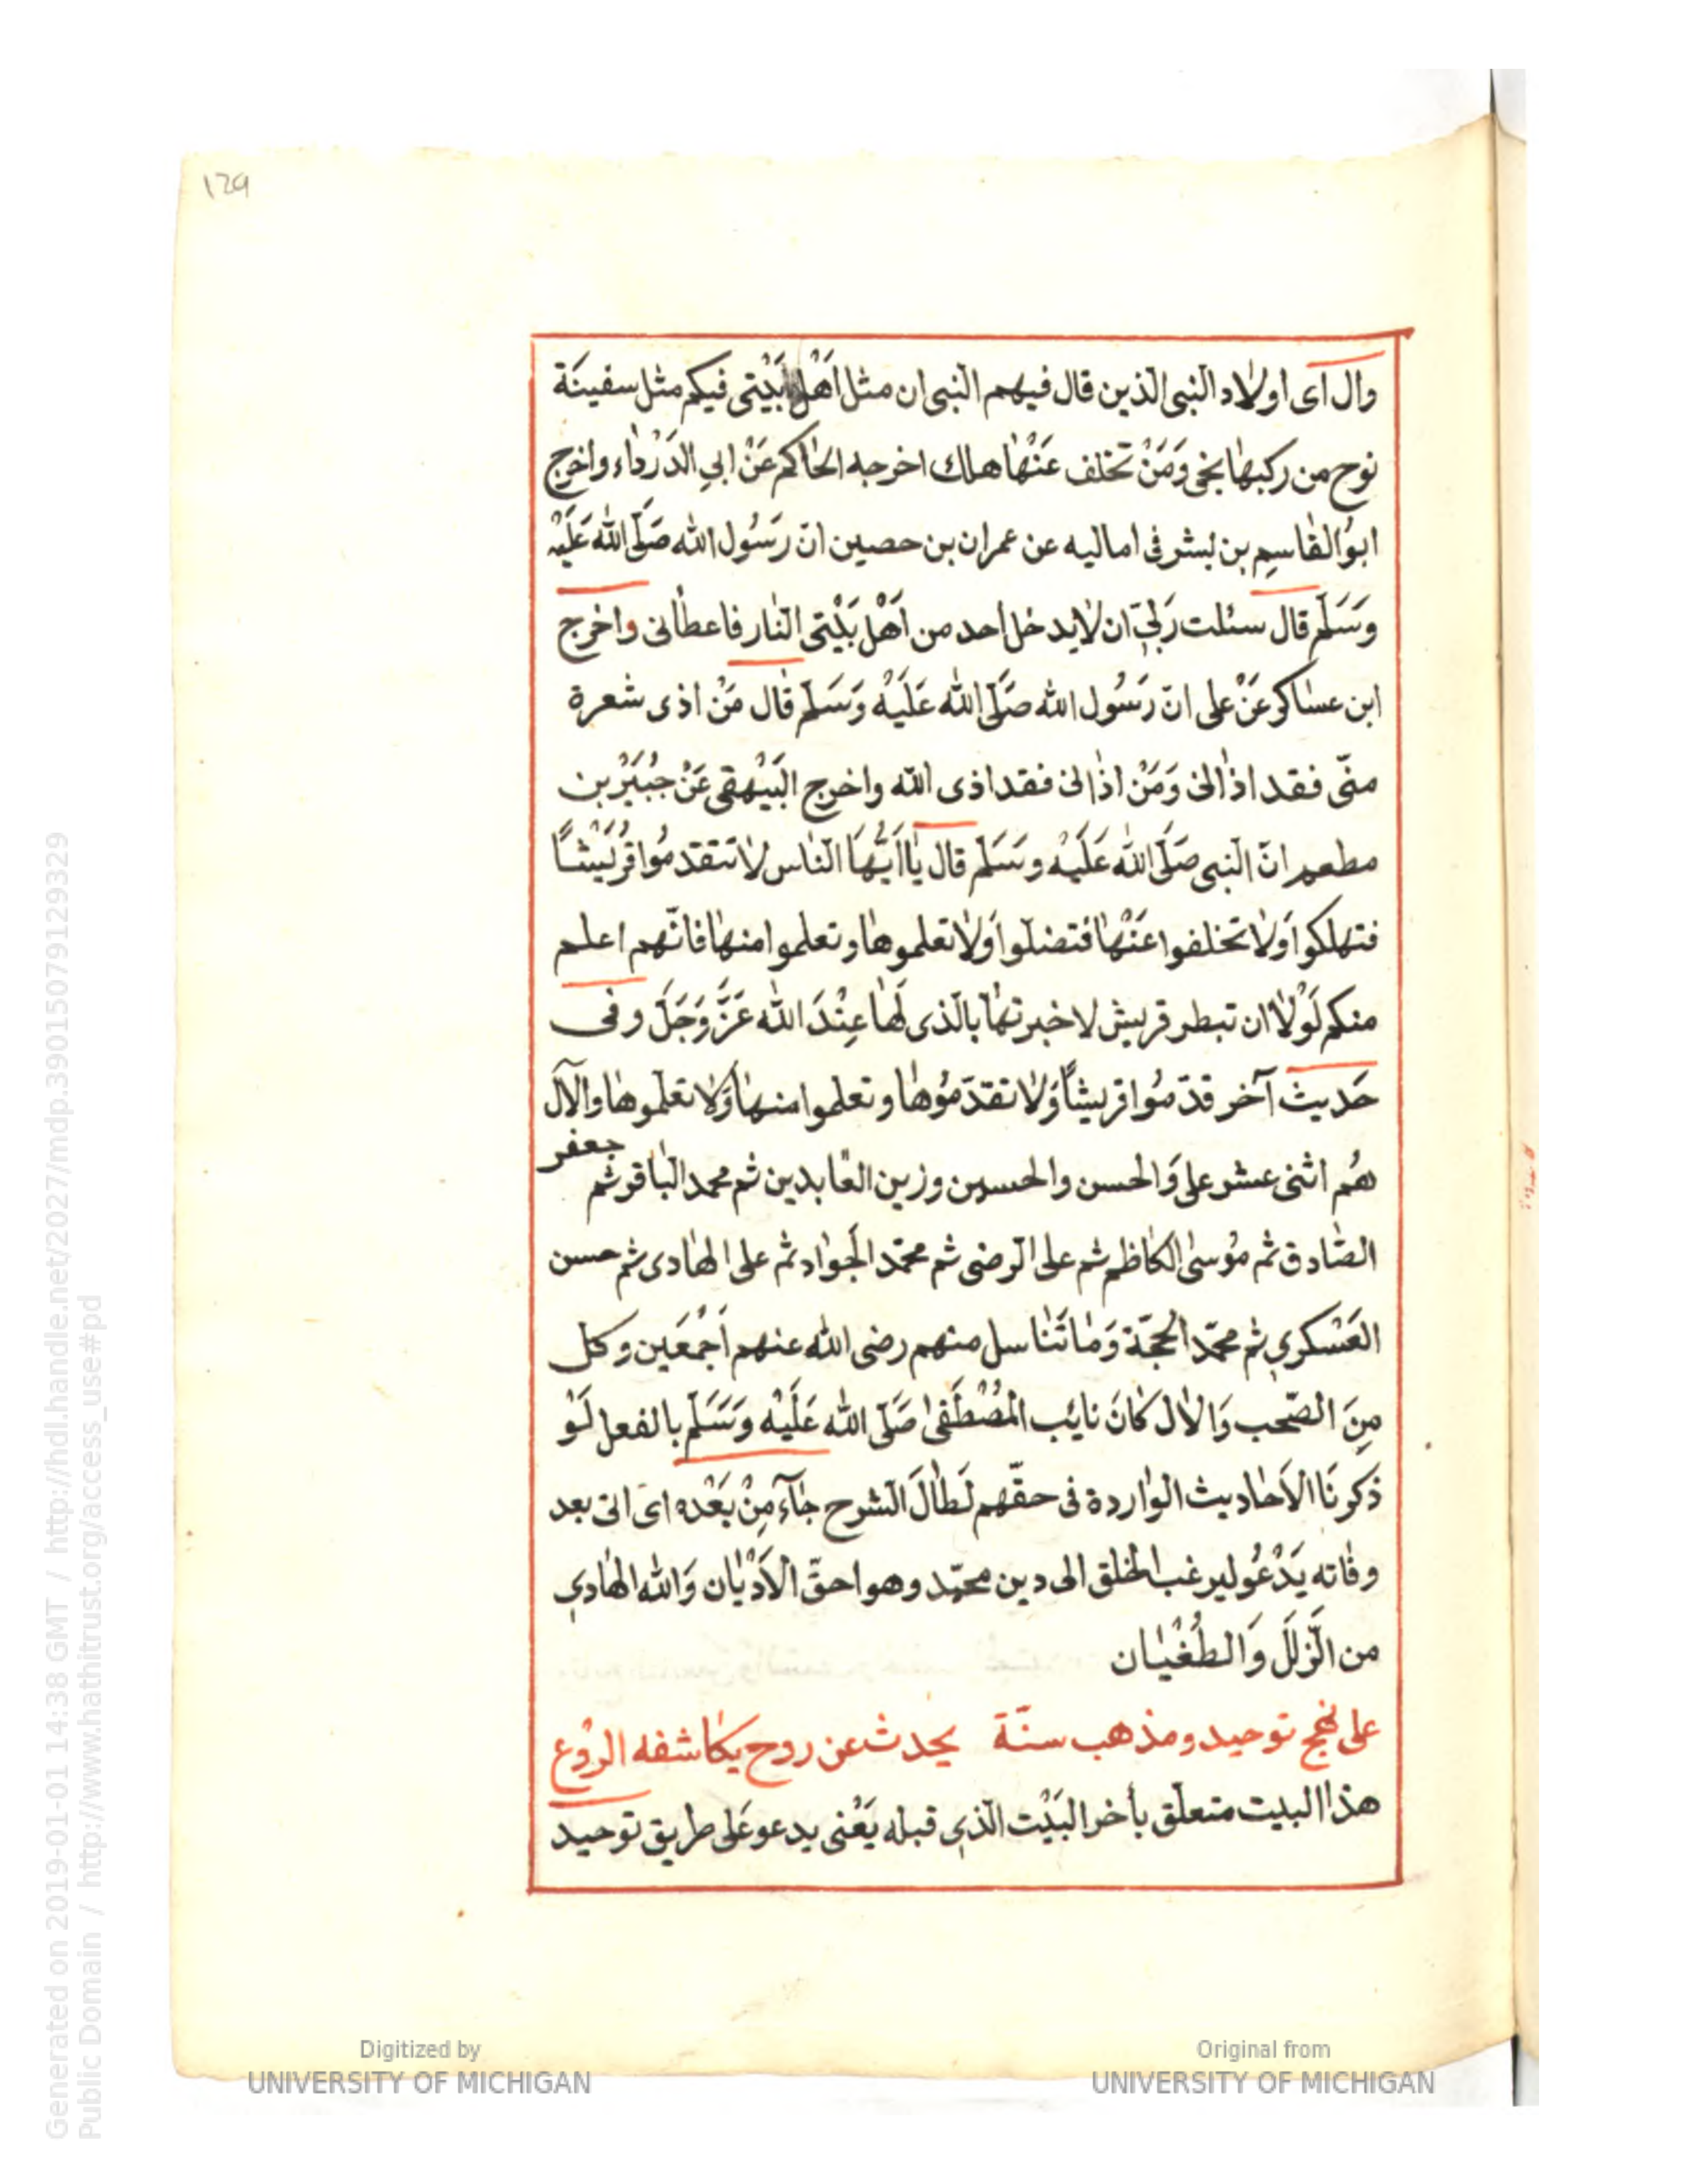 129
وال اى اولاد النبى الذين قال فيهم النبى ان مثل اَهْل بَيْتى فيكم مثل سفينَة
نوح من ركبهٰا نجى وَمَنْ تخلف عَنْهٰا هلك اخرجه الحٰاكم عَنْ ابي الدَرْدٰاء واخرج
ابوُالقٰاسِم بن بشر فى اماليه عن عمران بن حصين انّ رَسُول الله صَلَّى الله عَلَيْه
وَسَلَّم قال سئلت رَبّي ان لٰا يدخل احد من اَهْل بَيْتى النّار فاعطٰانى واخرج
ابن عسٰاكر عَنْ على انّ رَسُول الله صَلَّى الله عَلَيْه وَسَلَّم قٰال مَنْ اذى شعرة
منّى فقد اذٰانى وَمَنْ اذٰانى فقد اذى الله واخرج البَيْهقى عَنْ جُبَيْر بن
مطعم انّ النبى صَلَّى الله عَلَيْه وسَلَّم قال يٰا اَيُّهَا النّاس لٰا تتقدموُا قُرَيْشاً
فتهلكوا وَلٰا تخلفوا عَنْهٰا فتضلّوا وَلٰا تعلموهٰا وتعلموا منهٰا فانّهم اعلم
منكم لَوْلٰا ان تبطر قريش لاخبرتهٰا بالّذى لَهٰا عِنْدَ الله عَزَّ وَجَلَّ وفى
حَديث آخر قدّموُا قريشاً وَلٰا تقدّموُهٰا وتعلموا منهٰا وَلٰا تعلّموهٰا والآل
هُم اثنى عشر على وَالحسن والحسين وزين العٰابدين ثم محمد البٰاقر ثم جعفر
الصّٰادق ثم مُوسىٰ الكٰاظم ثم على الرضى ثم محمّد الجَوٰاد ثم على الهٰادى ثم حسن
العَسْكري ثم محمّد الحجّة وَمٰا تَنٰاسل منهم رضى الله عنهم اَجْمَعين وكل
مِنَ الصّحب وَالاٰل كٰانَ نٰايُب المُصْطَفىٰ صَلَّى الله عَلَيْه وَسَلَّم بالفعل لَوْ
ذكرنَا الاَحٰاديث الوٰاردة فى حقّهم لَطٰالَ الشرح جٰآءَ مِنْ بَعْده اى اتى بعد
وفٰاته يَدْعُو ليرغب الخلق الى دين محمّد وهو احقّ الاَدْيٰان وَالله الهٰادي
من الزّلَل وَالطُغْيٰان
على نهج توحيد ومذهب سنّة يحدث عن روح يكٰاشفه الرُوع
هذٰا البيت متعلّق بأخر البَيْت الّذي قبله يَعْنى يدعو عَلى طريق توحيد
Generated on 2019-01-01 14:38 GMT / http://hdl.handle.net/2027/mdp.39015079129329
Public Domain / http://www.hathitrust.org/access_use#pd
Digitized by
UNIVERSITY OF MICHIGAN
Original from
UNIVERSITY OF MICHIGAN